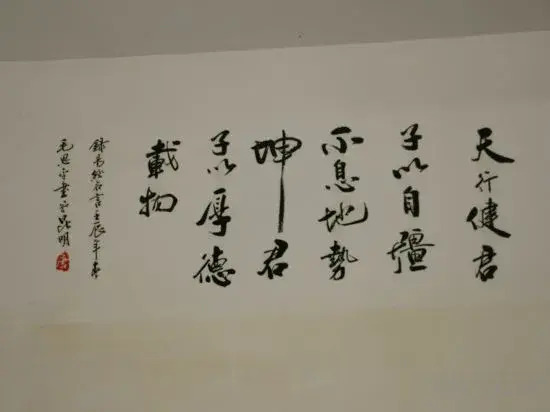 天行健君
子以自疆
不息地勢
坤君
子以厚德
載物
録易経名言壬辰年春
毛思守書於昆明